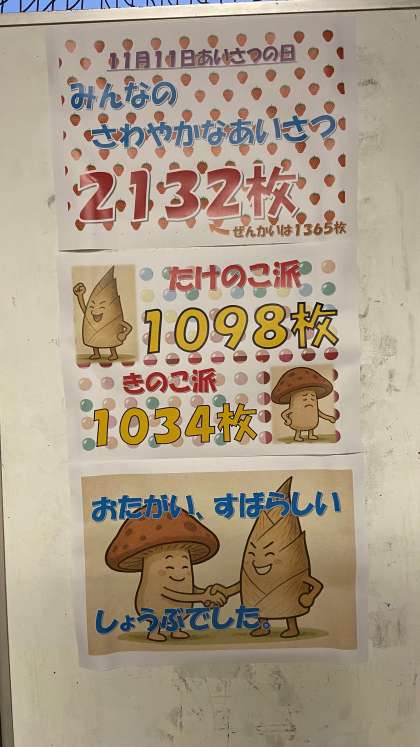 11月11日あいさつの日
みんなの
さわやかなあいさつ
2132枚
ぜんかいは1365枚
たけのこ派
1098枚
きのこ派
1034枚
おたがい、すばらしい
しょうぶでした。